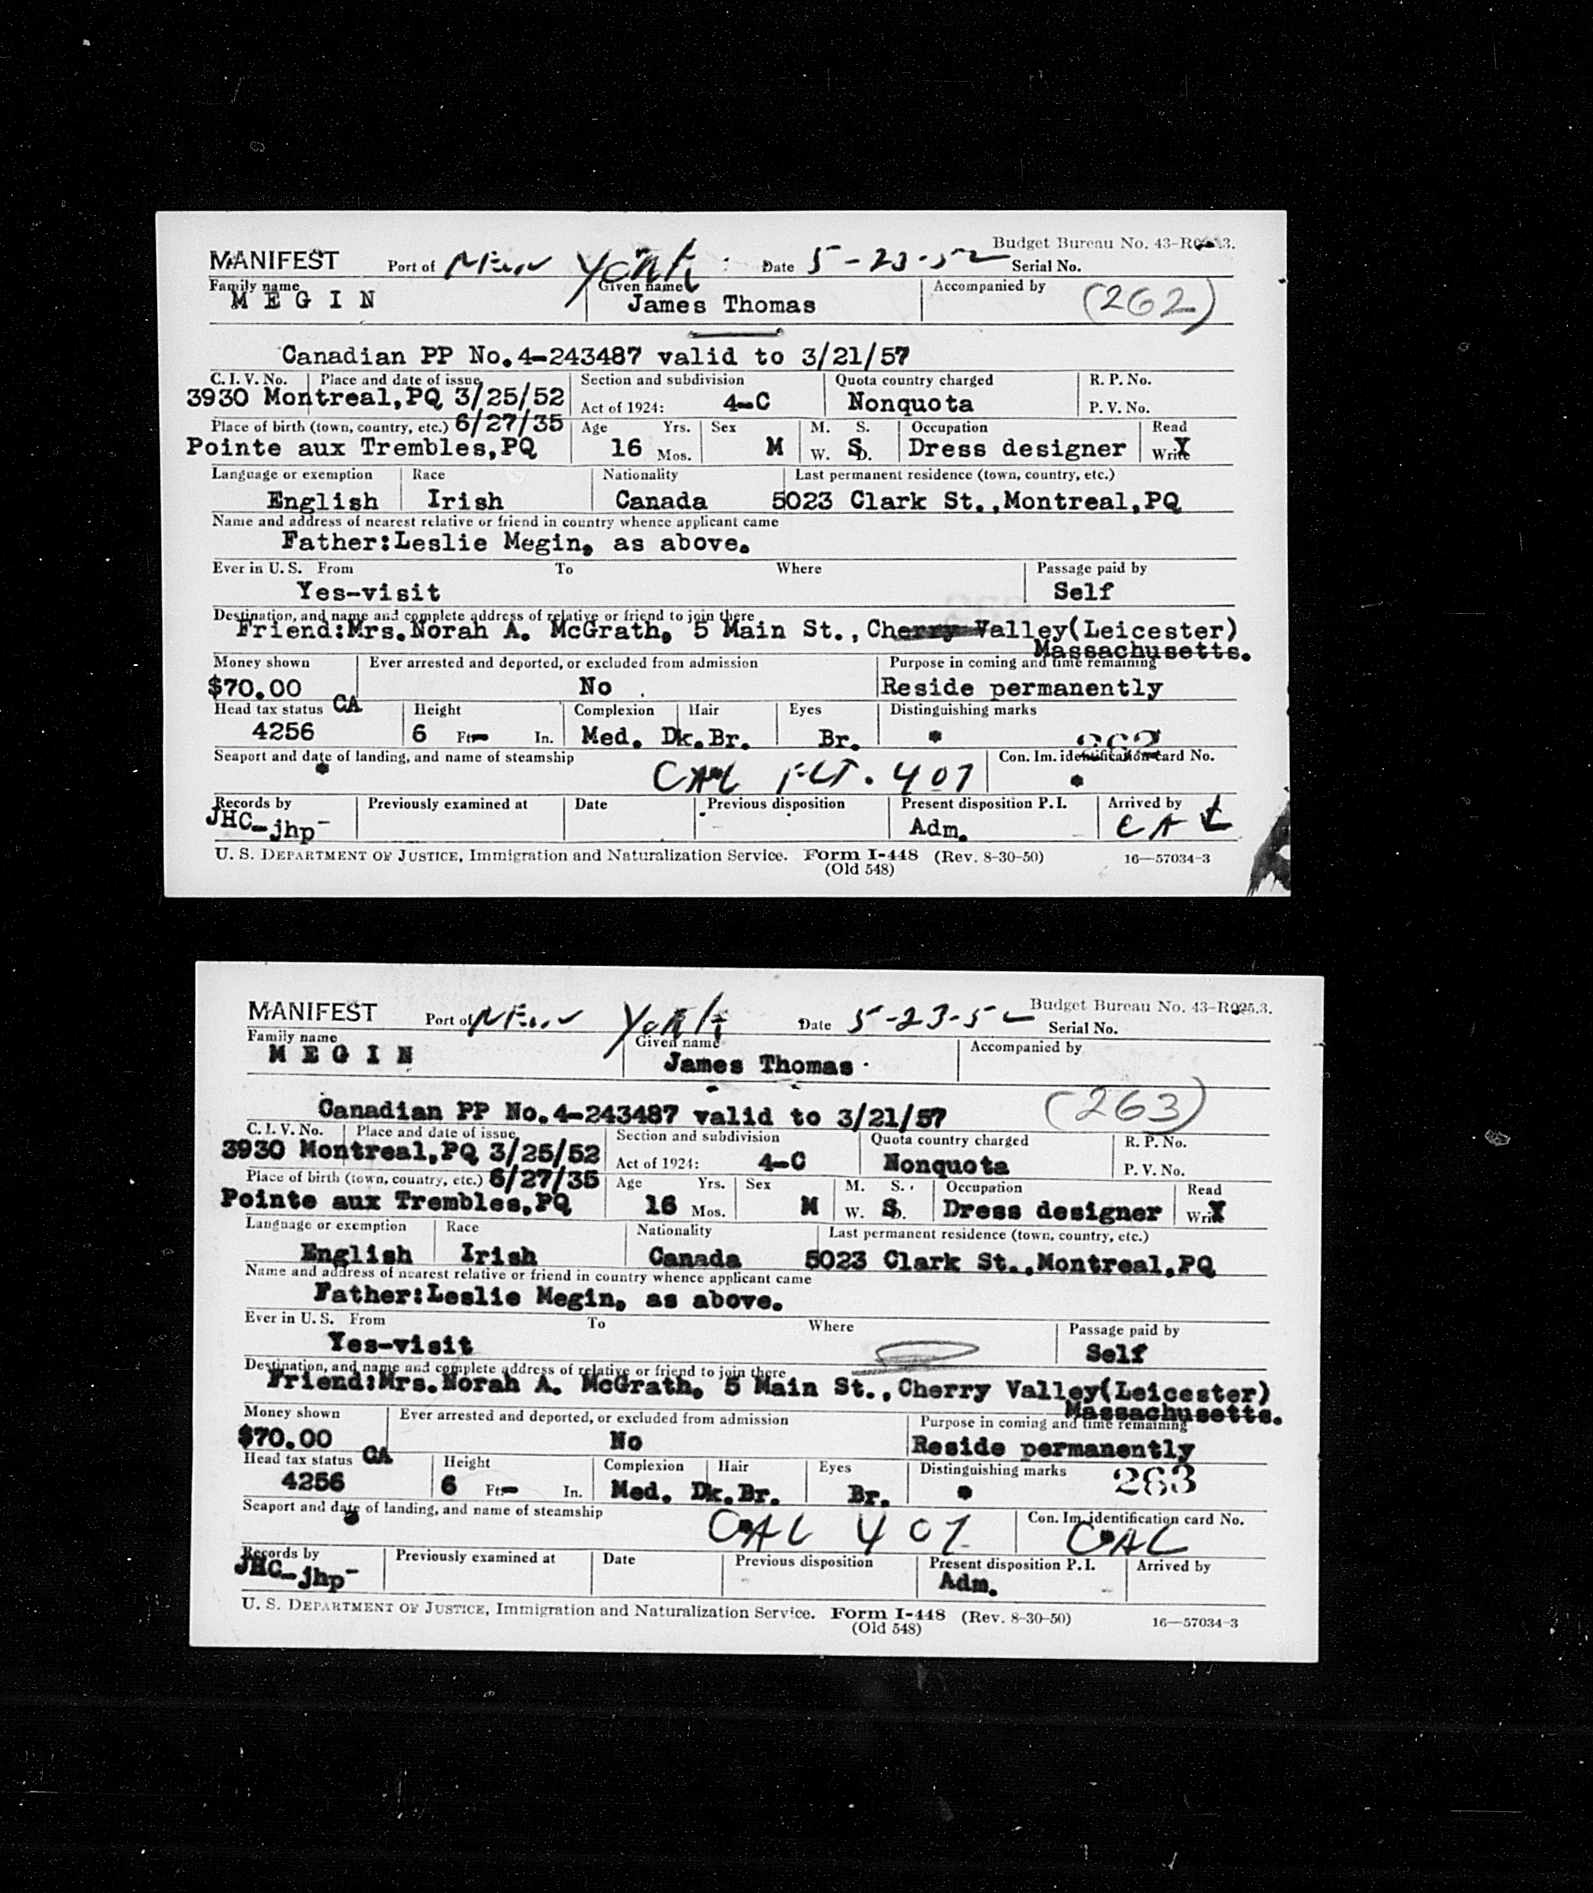 MANIFEST Port of New York Date 5-23-52 Budget Bureau No. 43-R
Serial No.
Family name Given name Accompanied by
MEGIN James Thomas (262)
Canadian PP No.4-243487 valid to 3/21/57
C. I. V. No. Place and date of issue Section and subdivision Quota country charged R. P. No.
3930 Montreal,PQ 3/25/52 Act of 1924: 4-C Nonquota P. V. No.
Place of birth (town, country, etc.) 6/27/35 Age Yrs. Sex M. S. Occupation Read
Pointe aux Trembles,PQ 16 Mos. M W. S D. Dress designer Write X
Language or exemption Race Nationality Last permanent residence (town, country, etc.)
English Irish Canada 5023 Clark St.,Montreal,PQ
Name and address of nearest relative or friend in country whence applicant came
Father:Leslie Megin, as above.
Ever in U. S. From To Where Passage paid by
Yes-visit Self
Destination, and name and complete address of relative or friend to join there
Friend:Mrs.Norah A. McGrath, 5 Main St., Cherry Valley(Leicester)
Massachusetts.
Money shown Ever arrested and deported, or excluded from admission Purpose in coming and time remaining
$70.00 No Reside permanently
Head tax status CA Height Complexion Hair Eyes Distinguishing marks
4256 6 Ft- In. Med. Dk.Br. Br. 262
Seaport and date of landing, and name of steamship Con. Im. identification card No.
CAL FLT. 407
Records by Previously examined at Date Previous disposition Present disposition P. I. Arrived by
JHC-jhp- Adm. CAL
U. S. DEPARTMENT OF JUSTICE, Immigration and Naturalization Service. Form I-448 (Rev. 8-30-50) 16—57034-3
(Old 548)
MANIFEST Port of New York Date 5-23-52 Budget Bureau No. 43-R025.3.
Serial No.
Family name Given name Accompanied by
MEGIN James Thomas
Canadian PP No.4-243487 valid to 3/21/57 (263)
C. I. V. No. Place and date of issue Section and subdivision Quota country charged R. P. No.
3930 Montreal,PQ 3/25/52 Act of 1924: 4-C Nonquota P. V. No.
Place of birth (town, country, etc.) 6/27/35 Age Yrs. Sex M. S. Occupation Read
Pointe aux Trembles,PQ 16 Mos. M W. S D. Dress designer Write X
Language or exemption Race Nationality Last permanent residence (town, country, etc.)
English Irish Canada 5023 Clark St.,Montreal,PQ
Name and address of nearest relative or friend in country whence applicant came
Father:Leslie Megin, as above.
Ever in U. S. From To Where Passage paid by
Yes-visit Self
Destination, and name and complete address of relative or friend to join there
Friend:Mrs.Norah A. McGrath, 5 Main St., Cherry Valley(Leicester)
Massachusetts.
Money shown Ever arrested and deported, or excluded from admission Purpose in coming and time remaining
$70.00 No Reside permanently
Head tax status CA Height Complexion Hair Eyes Distinguishing marks
4256 6 Ft- In. Med. Dk.Br. Br. 263
Seaport and date of landing, and name of steamship Con. Im. identification card No.
CAL 407 CAL
Records by Previously examined at Date Previous disposition Present disposition P. I. Arrived by
JHC-jhp- Adm.
U. S. DEPARTMENT OF JUSTICE, Immigration and Naturalization Service. Form I-448 (Rev. 8-30-50) 16—57034-3
(Old 548)